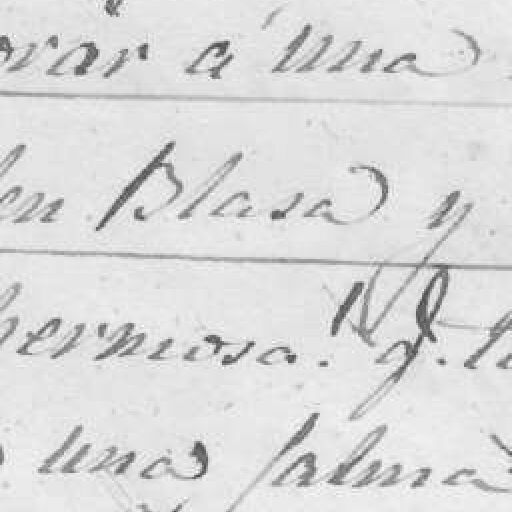 orár á una
en Blasa y
hermosa.
una Salma